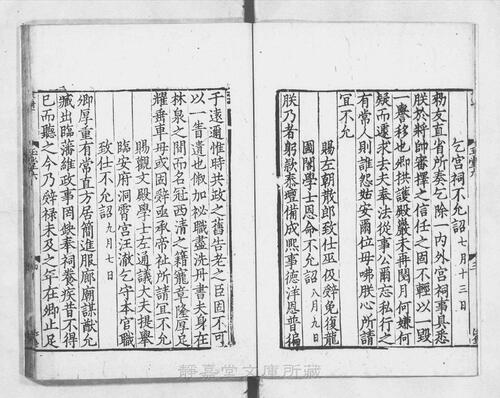 乞宮祠不允詔 七月十三日
勑友直省所奏乞除一內外宮祠事具悉
朕於將帥審擇之信任之固不輕以毀
一譽移也卿拱護殿巖未再閱月何嫌何
疑而遽求去夫奉法從事公爾忘私行之
有常人則誰怨姑安爾位母咈朕心所請
宜不允
賜左朝散郎致仕巫伋辭免復龍
圖閣學士恩命不允詔 八月九日
朕乃者躬歘柰壇備成熙事德洋恩普徧
于遠邇惟時共政之舊告老之臣固不可
以一眚遺也俶加祕職盡洗丹書夫身在
林泉之間而名冠西清之籍寵章隆厚足
耀垂車毋或固辭亟承帝祉所請宜不允
賜觀文殿學士左通議大夫提舉
臨安府洞霄宮汪澈乞守本官職
致仕不允詔 九月七日
卿厚重有常直方居簡進服廊廟謀猷允
臧出臨藩維政事罔缺奉祠養疾昔不得
已而聽之今乃辭祿未及之年在卿止足
靜嘉堂文庫所藏